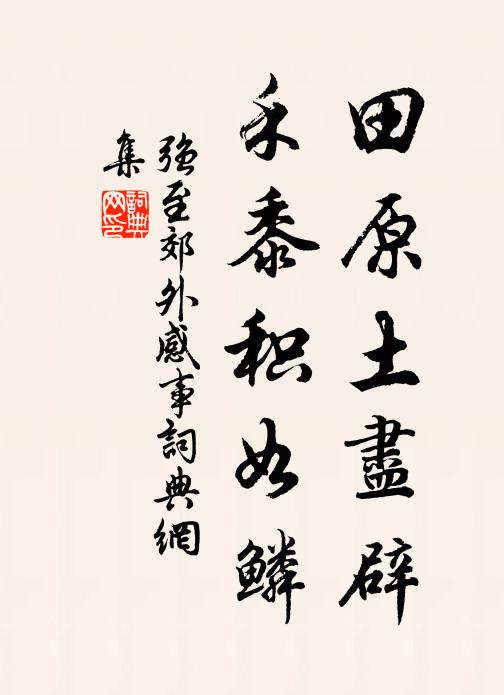 田原土盡辟
禾黍积如鳞
強至郊外感事詞典網
集
詞典
网印